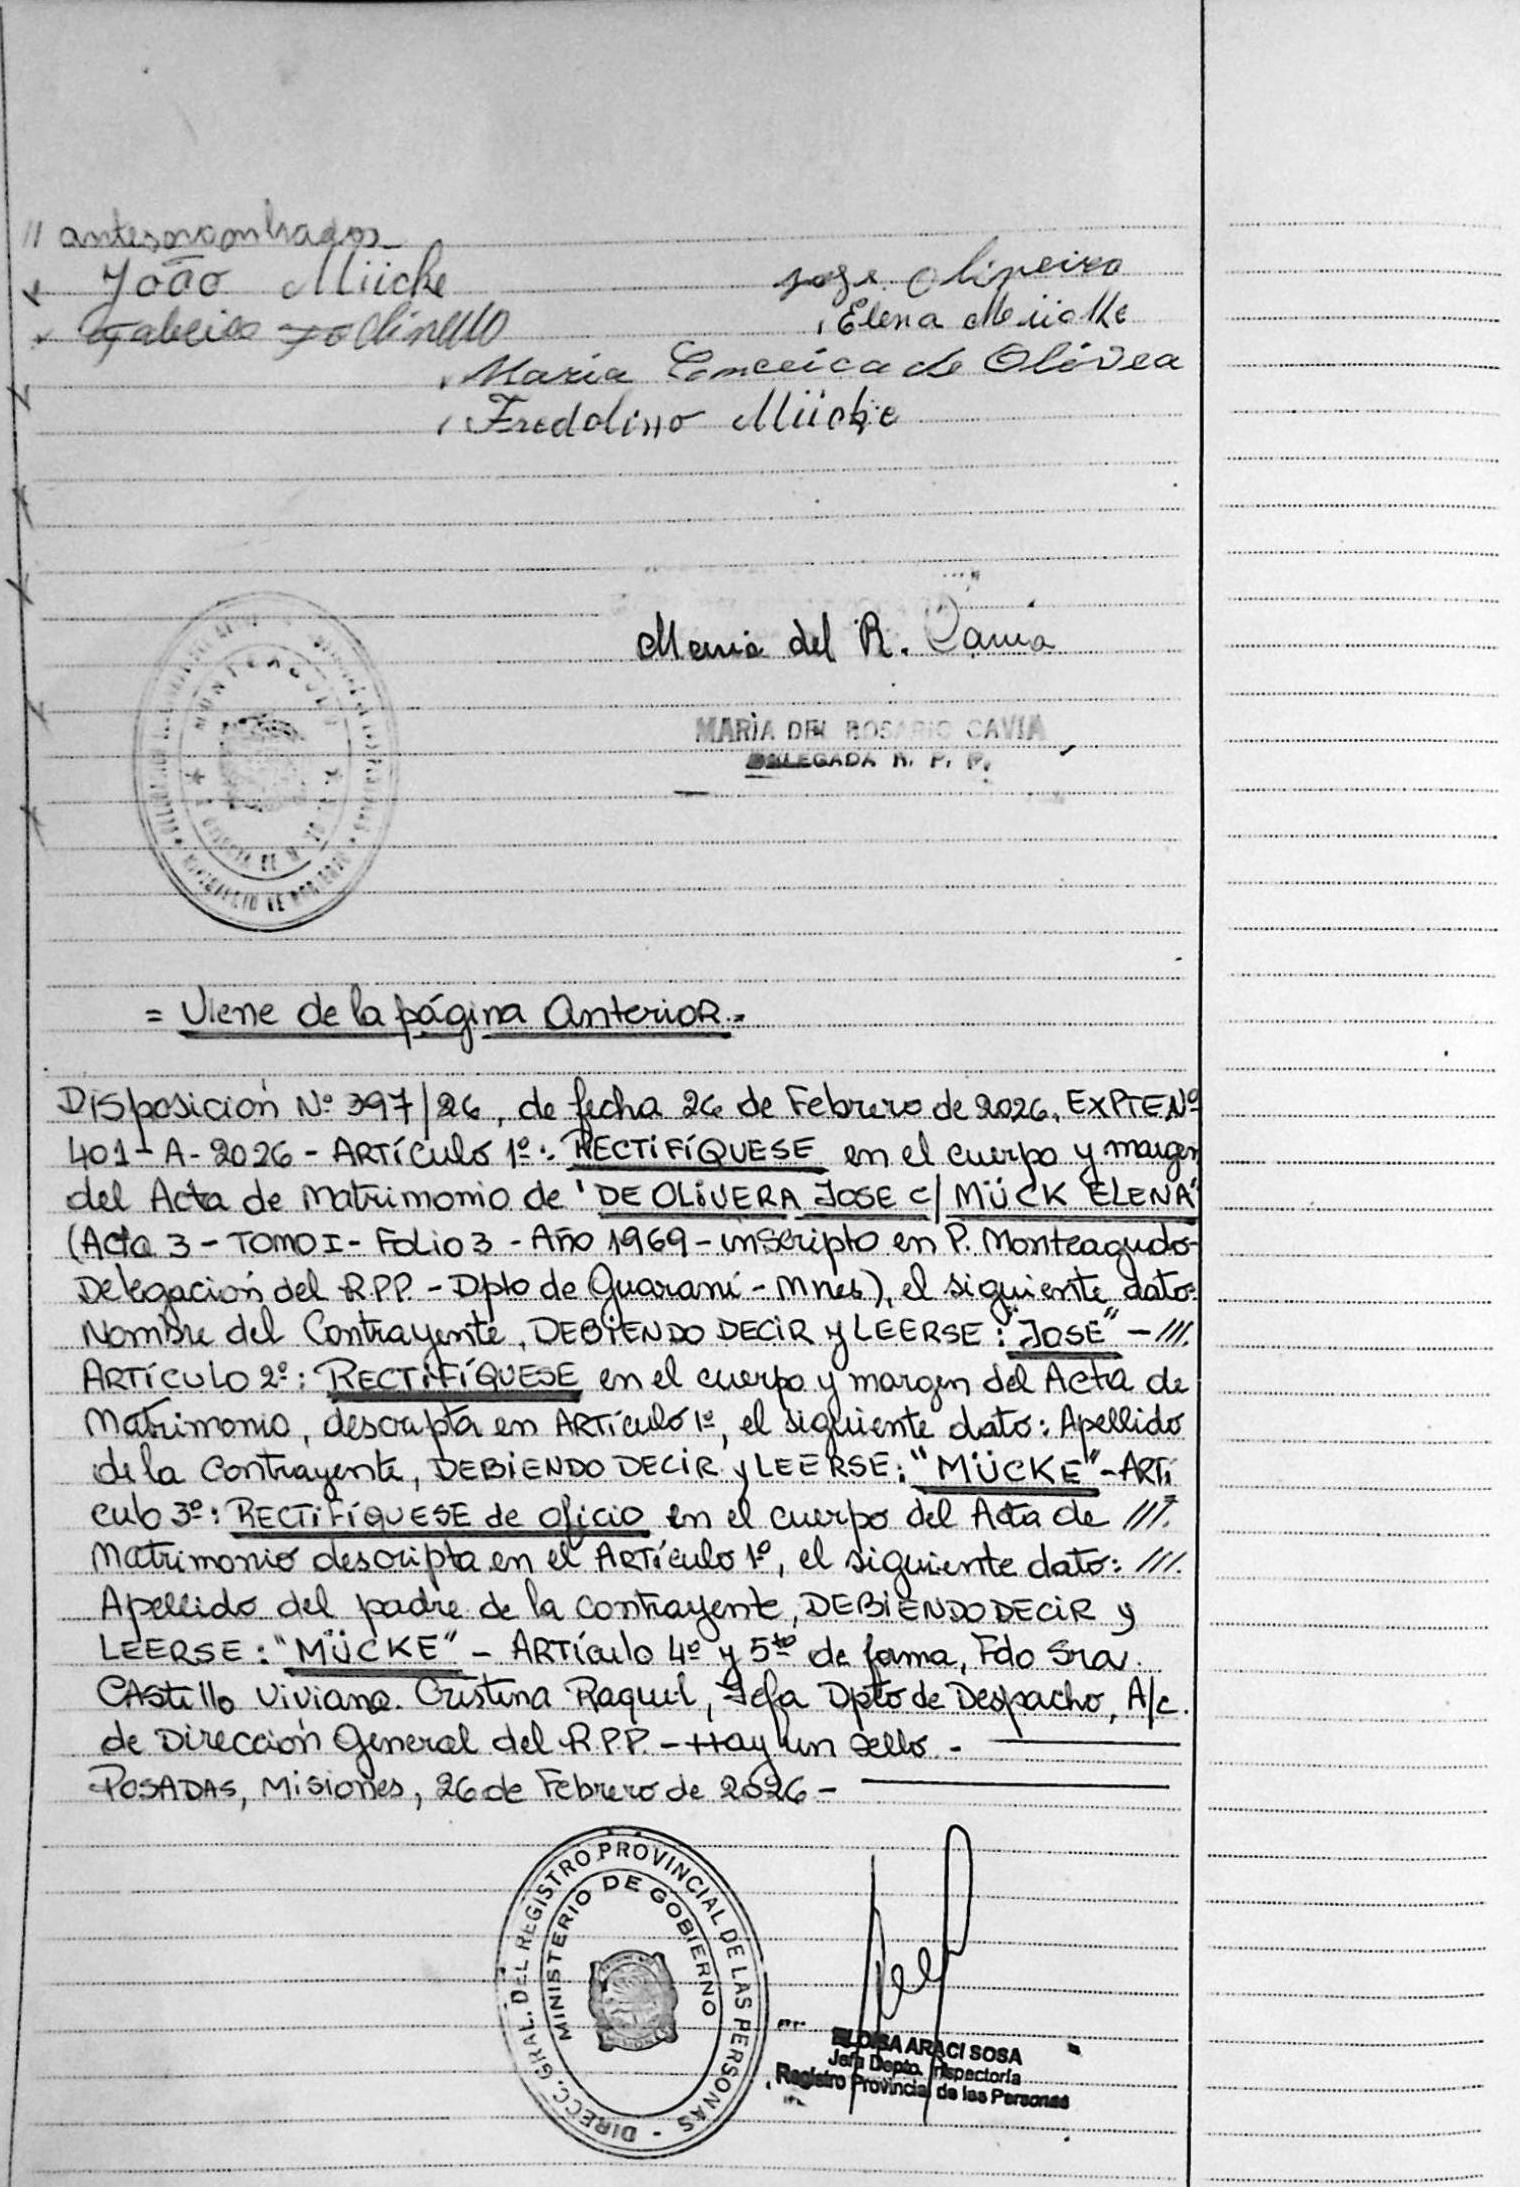 // antesnombrados
João Mücke
Jose Olipeira
Elena Mücke
Maria Conceica de Olivea
Fredolino Mücke
Maria del R. Cavia
MARÌA DEL ROSARIO CAVIA
DELEGADA R. P. P.
= Viene de la página anterior.=
Disposición Nº 397/26, de fecha 26 de Febrero de 2026, EXPTE Nº
401-A-2026 - ARTÍCULO 1º: RECTIFÍQUESE en el cuerpo y margen
del Acta de Matrimonio de "DE OLIVERA JOSE c/ MÜCK ELENA"
(Acta 3 - TOMO I - Folio 3 - Año 1969 - inscripto en P. Monteagudo-
Delegación del R.P.P. - Dpto de Guaraní - Mnes), el siguiente dato:
Nombre del Contrayente, DEBIENDO DECIR y LEERSE: "JOSÉ" - ///.
ARTÍCULO 2º: RECTIFÍQUESE en el cuerpo y margen del Acta de
Matrimonio, descripta en ARTÍCULO 1º, el siguiente dato: Apellido
de la Contrayente, DEBIENDO DECIR y LEERSE: "MÜCKE" - ARTÍ
culo 3º: RECTIFÍQUESE de oficio en el cuerpo del Acta de ///.
Matrimonio descripta en el ARTÍCULO 1º, el siguiente dato: ///.
Apellido del padre de la contrayente, DEBIENDO DECIR y
LEERSE: "MÜCKE" - ARTÍCULO 4º y 5to de forma, Fdo Sra.
CAStillo Viviana Cristina Raquel, Jefa Dpto de Despacho, A/c.
de Dirección General del R.P.P. - Hay un sello -
POSADAS, Misiones, 26 de Febrero de 2026 -
DIRECC. GRAL. DEL REGISTRO PROVINCIAL DE LAS PERSONAS -
MINISTERIO DE GOBIERNO
ELOISA ARACI SOSA
Jefa Depto. Inspectoría
Registro Provincial de las Personas